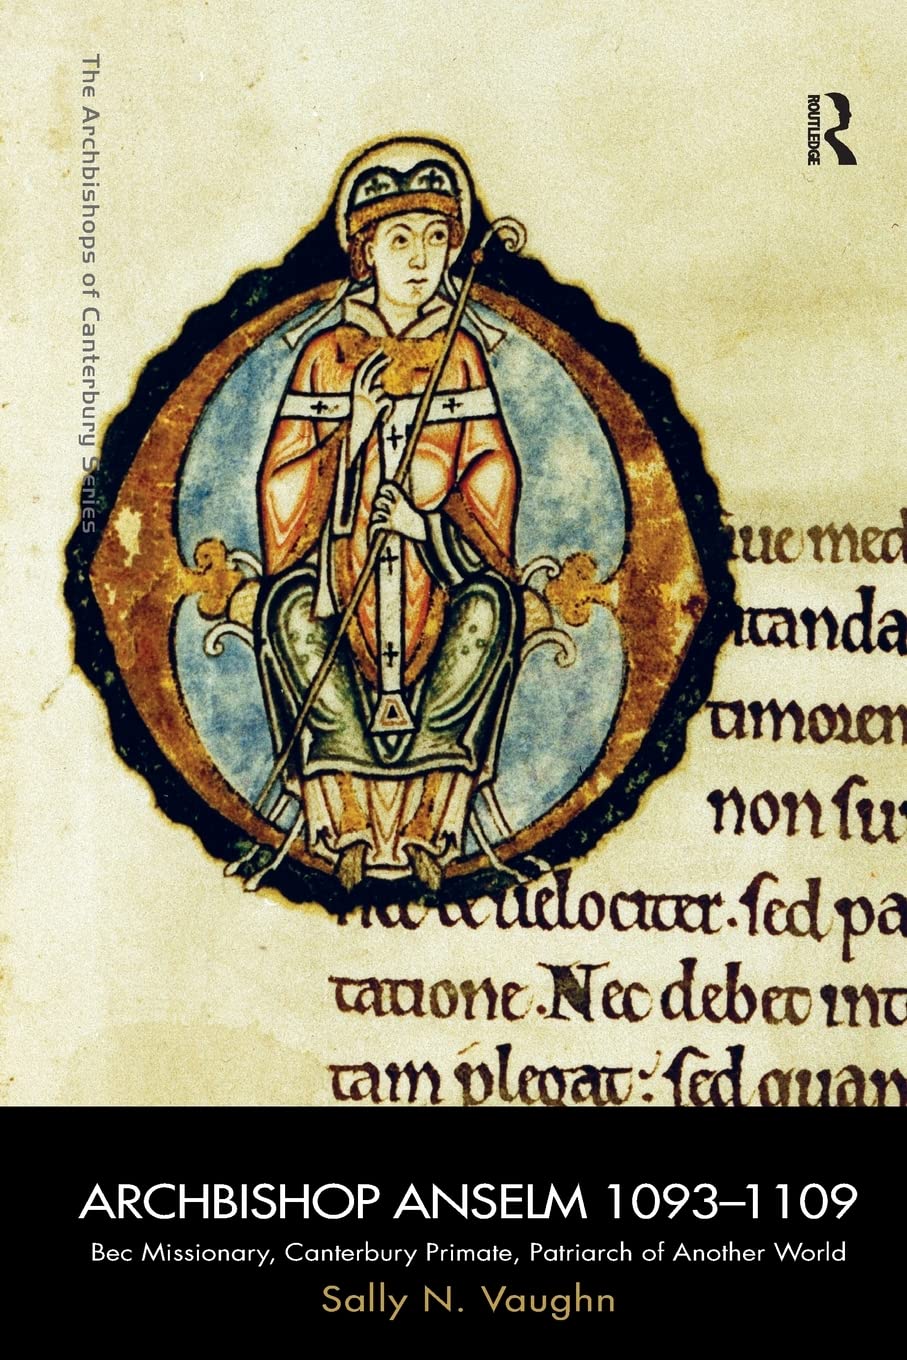 The Archbishops of Canterbury Series
ROUTLEDGE
med
tanda
timorem
non ſu
uelociter. ſed pa
tatione. Nec debet int
tam plegat: ſed quam
ARCHBISHOP ANSELM 1093–1109
Bec Missionary, Canterbury Primate, Patriarch of Another World
Sally N. Vaughn